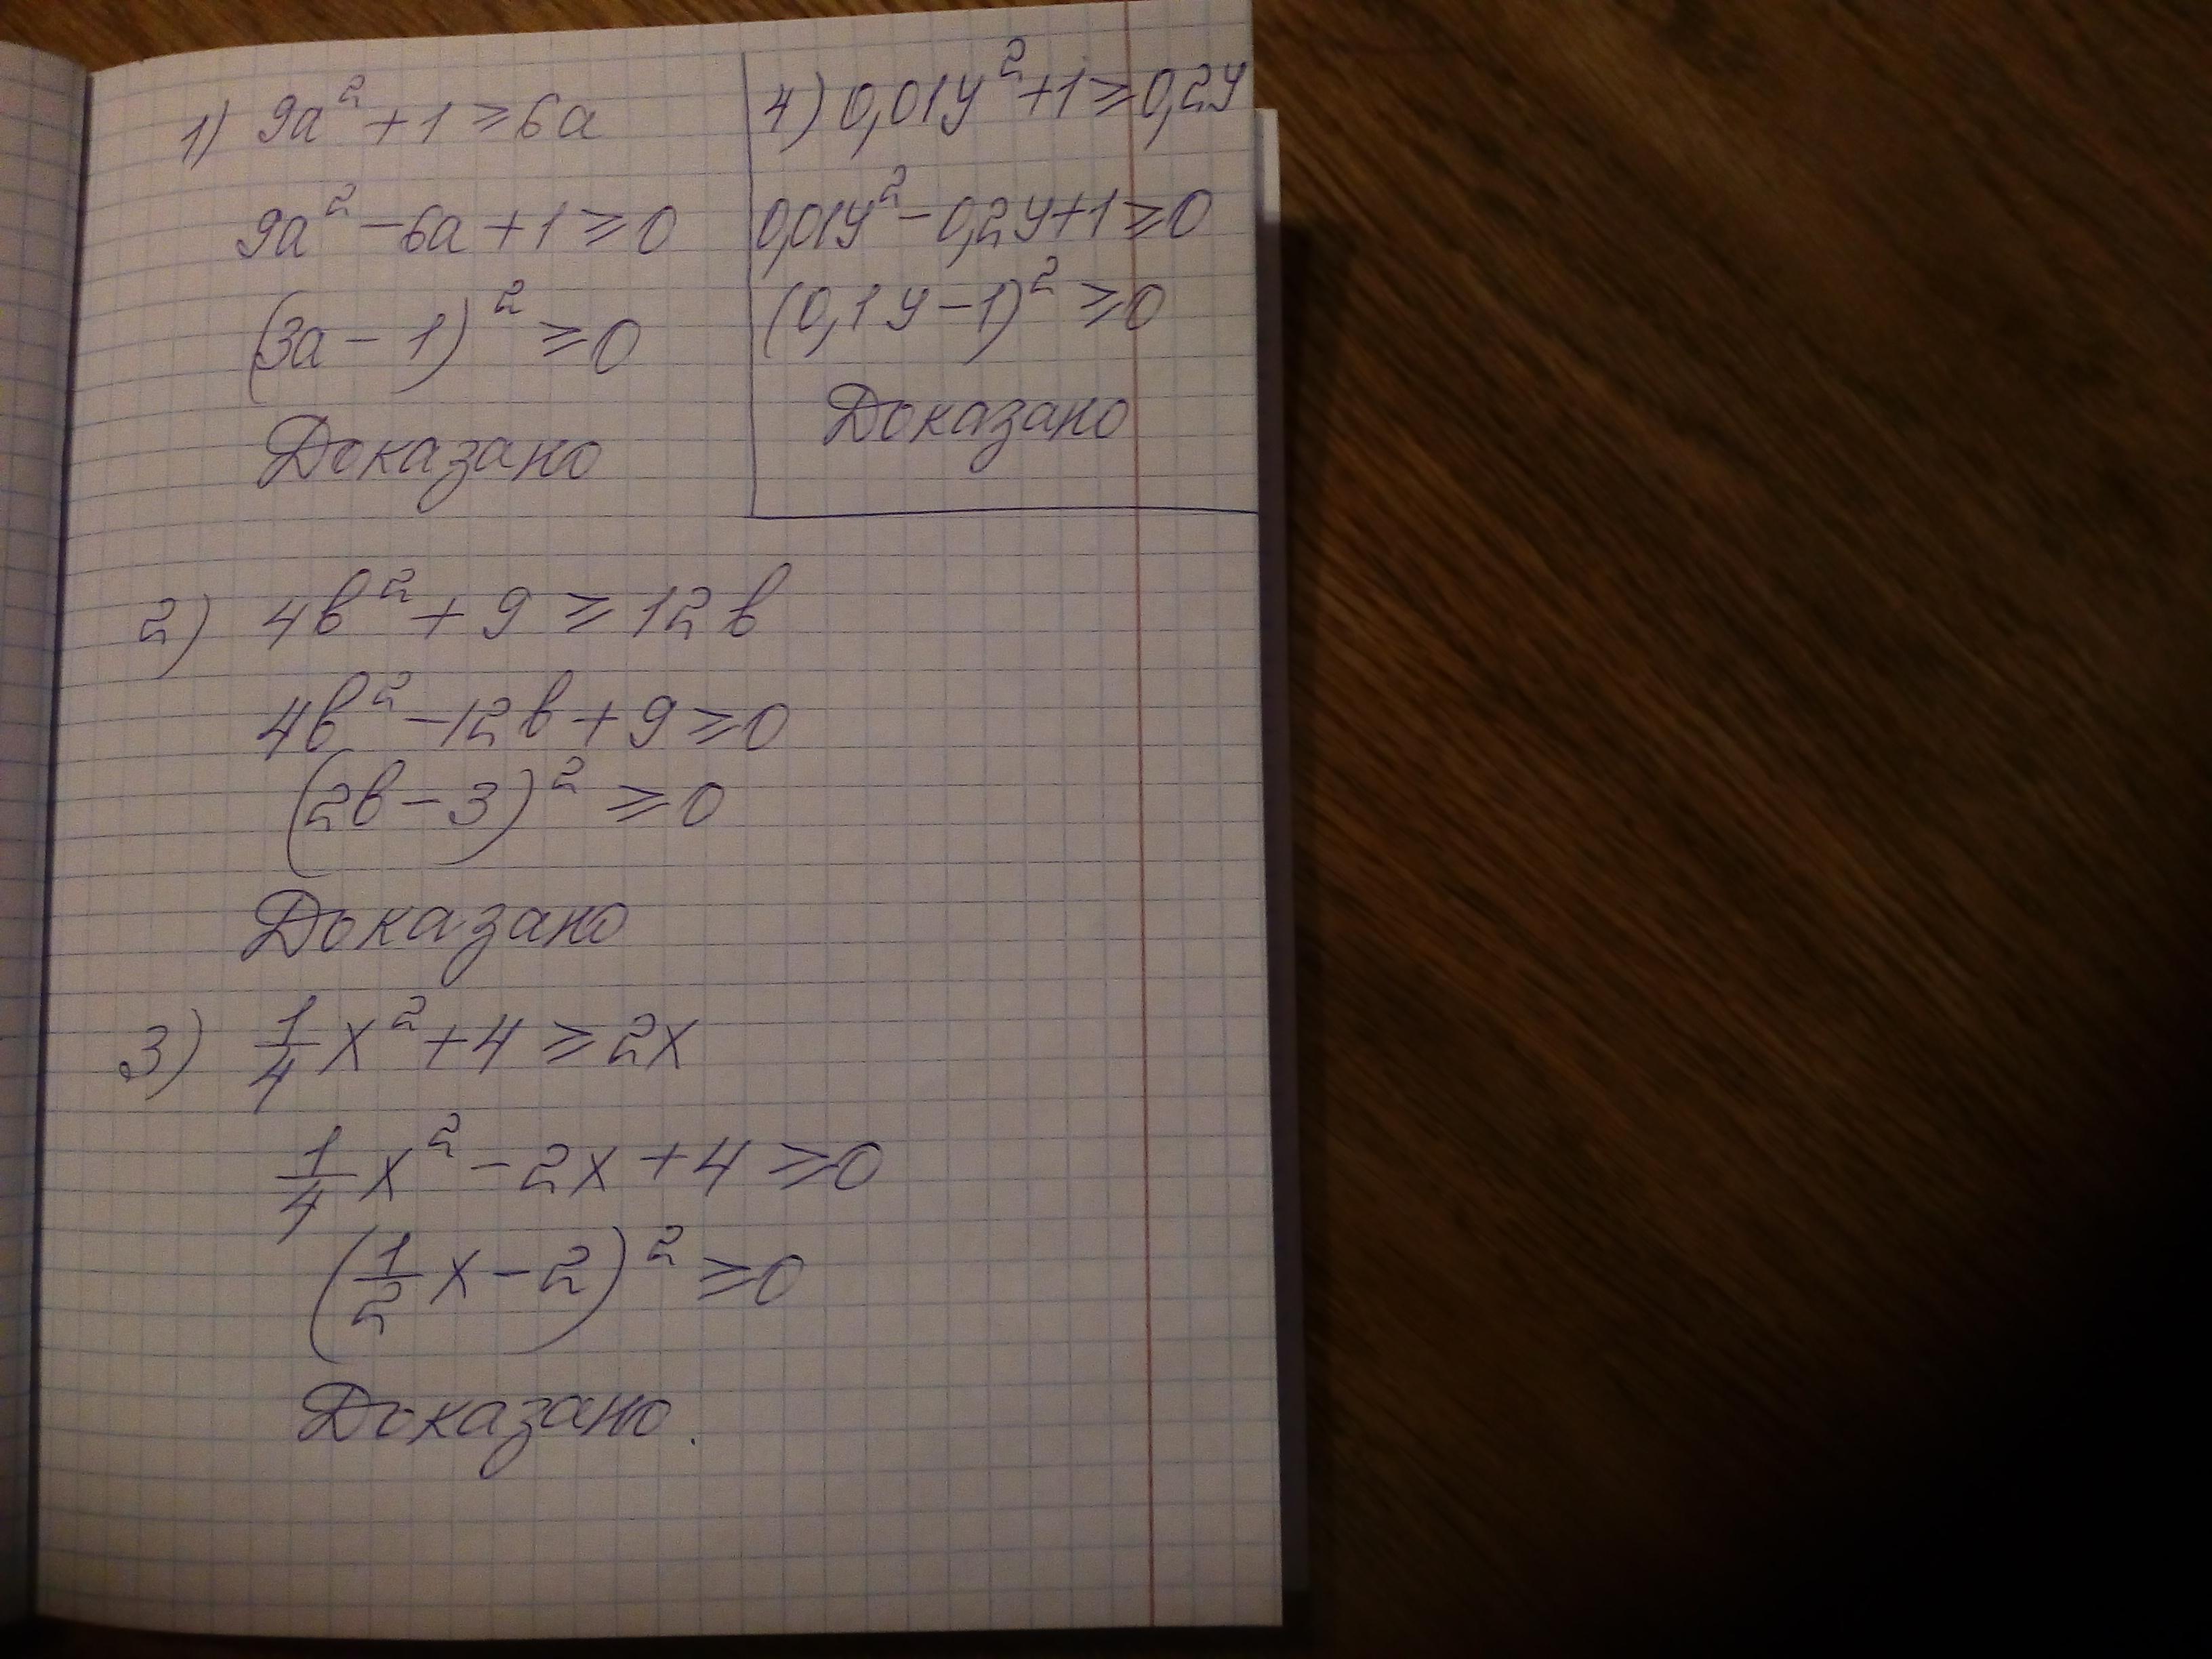 1) 9a² + 1 ⩾ 6a
9a² - 6a + 1 ⩾ 0
(3a - 1)² ⩾ 0
Доказано
4) 0,01y² + 1 ⩾ 0,2y
0,01y² - 0,2y + 1 ⩾ 0
(0,1y - 1)² ⩾ 0
Доказано
2) 4b² + 9 ⩾ 12b
4b² - 12b + 9 ⩾ 0
(2b - 3)² ⩾ 0
Доказано
3) 1/4 x² + 4 ⩾ 2x
1/4 x² - 2x + 4 ⩾ 0
(1/2 x - 2)² ⩾ 0
Доказано.